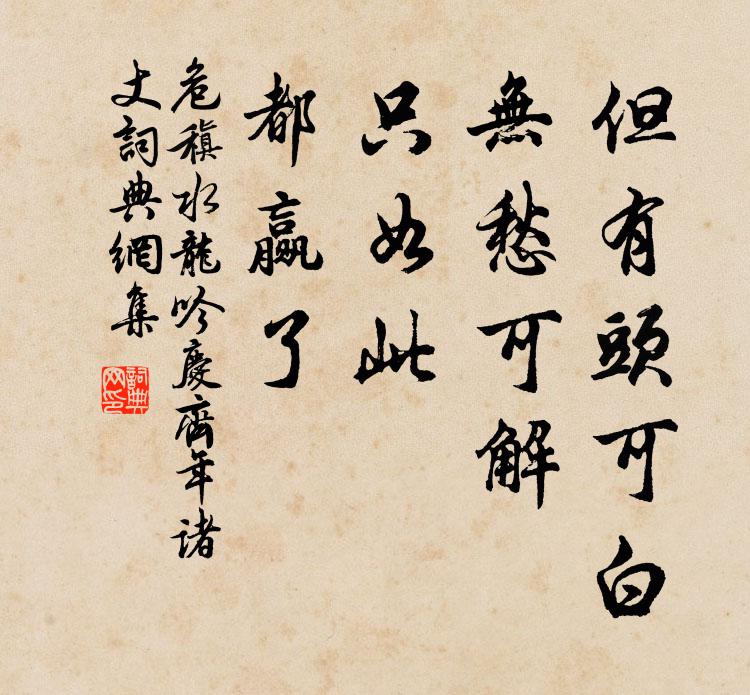 但有頭可白
無愁可解
只如此
都贏了
危稹水龍吟慶齊年諸
丈詞典網集
詞典网印